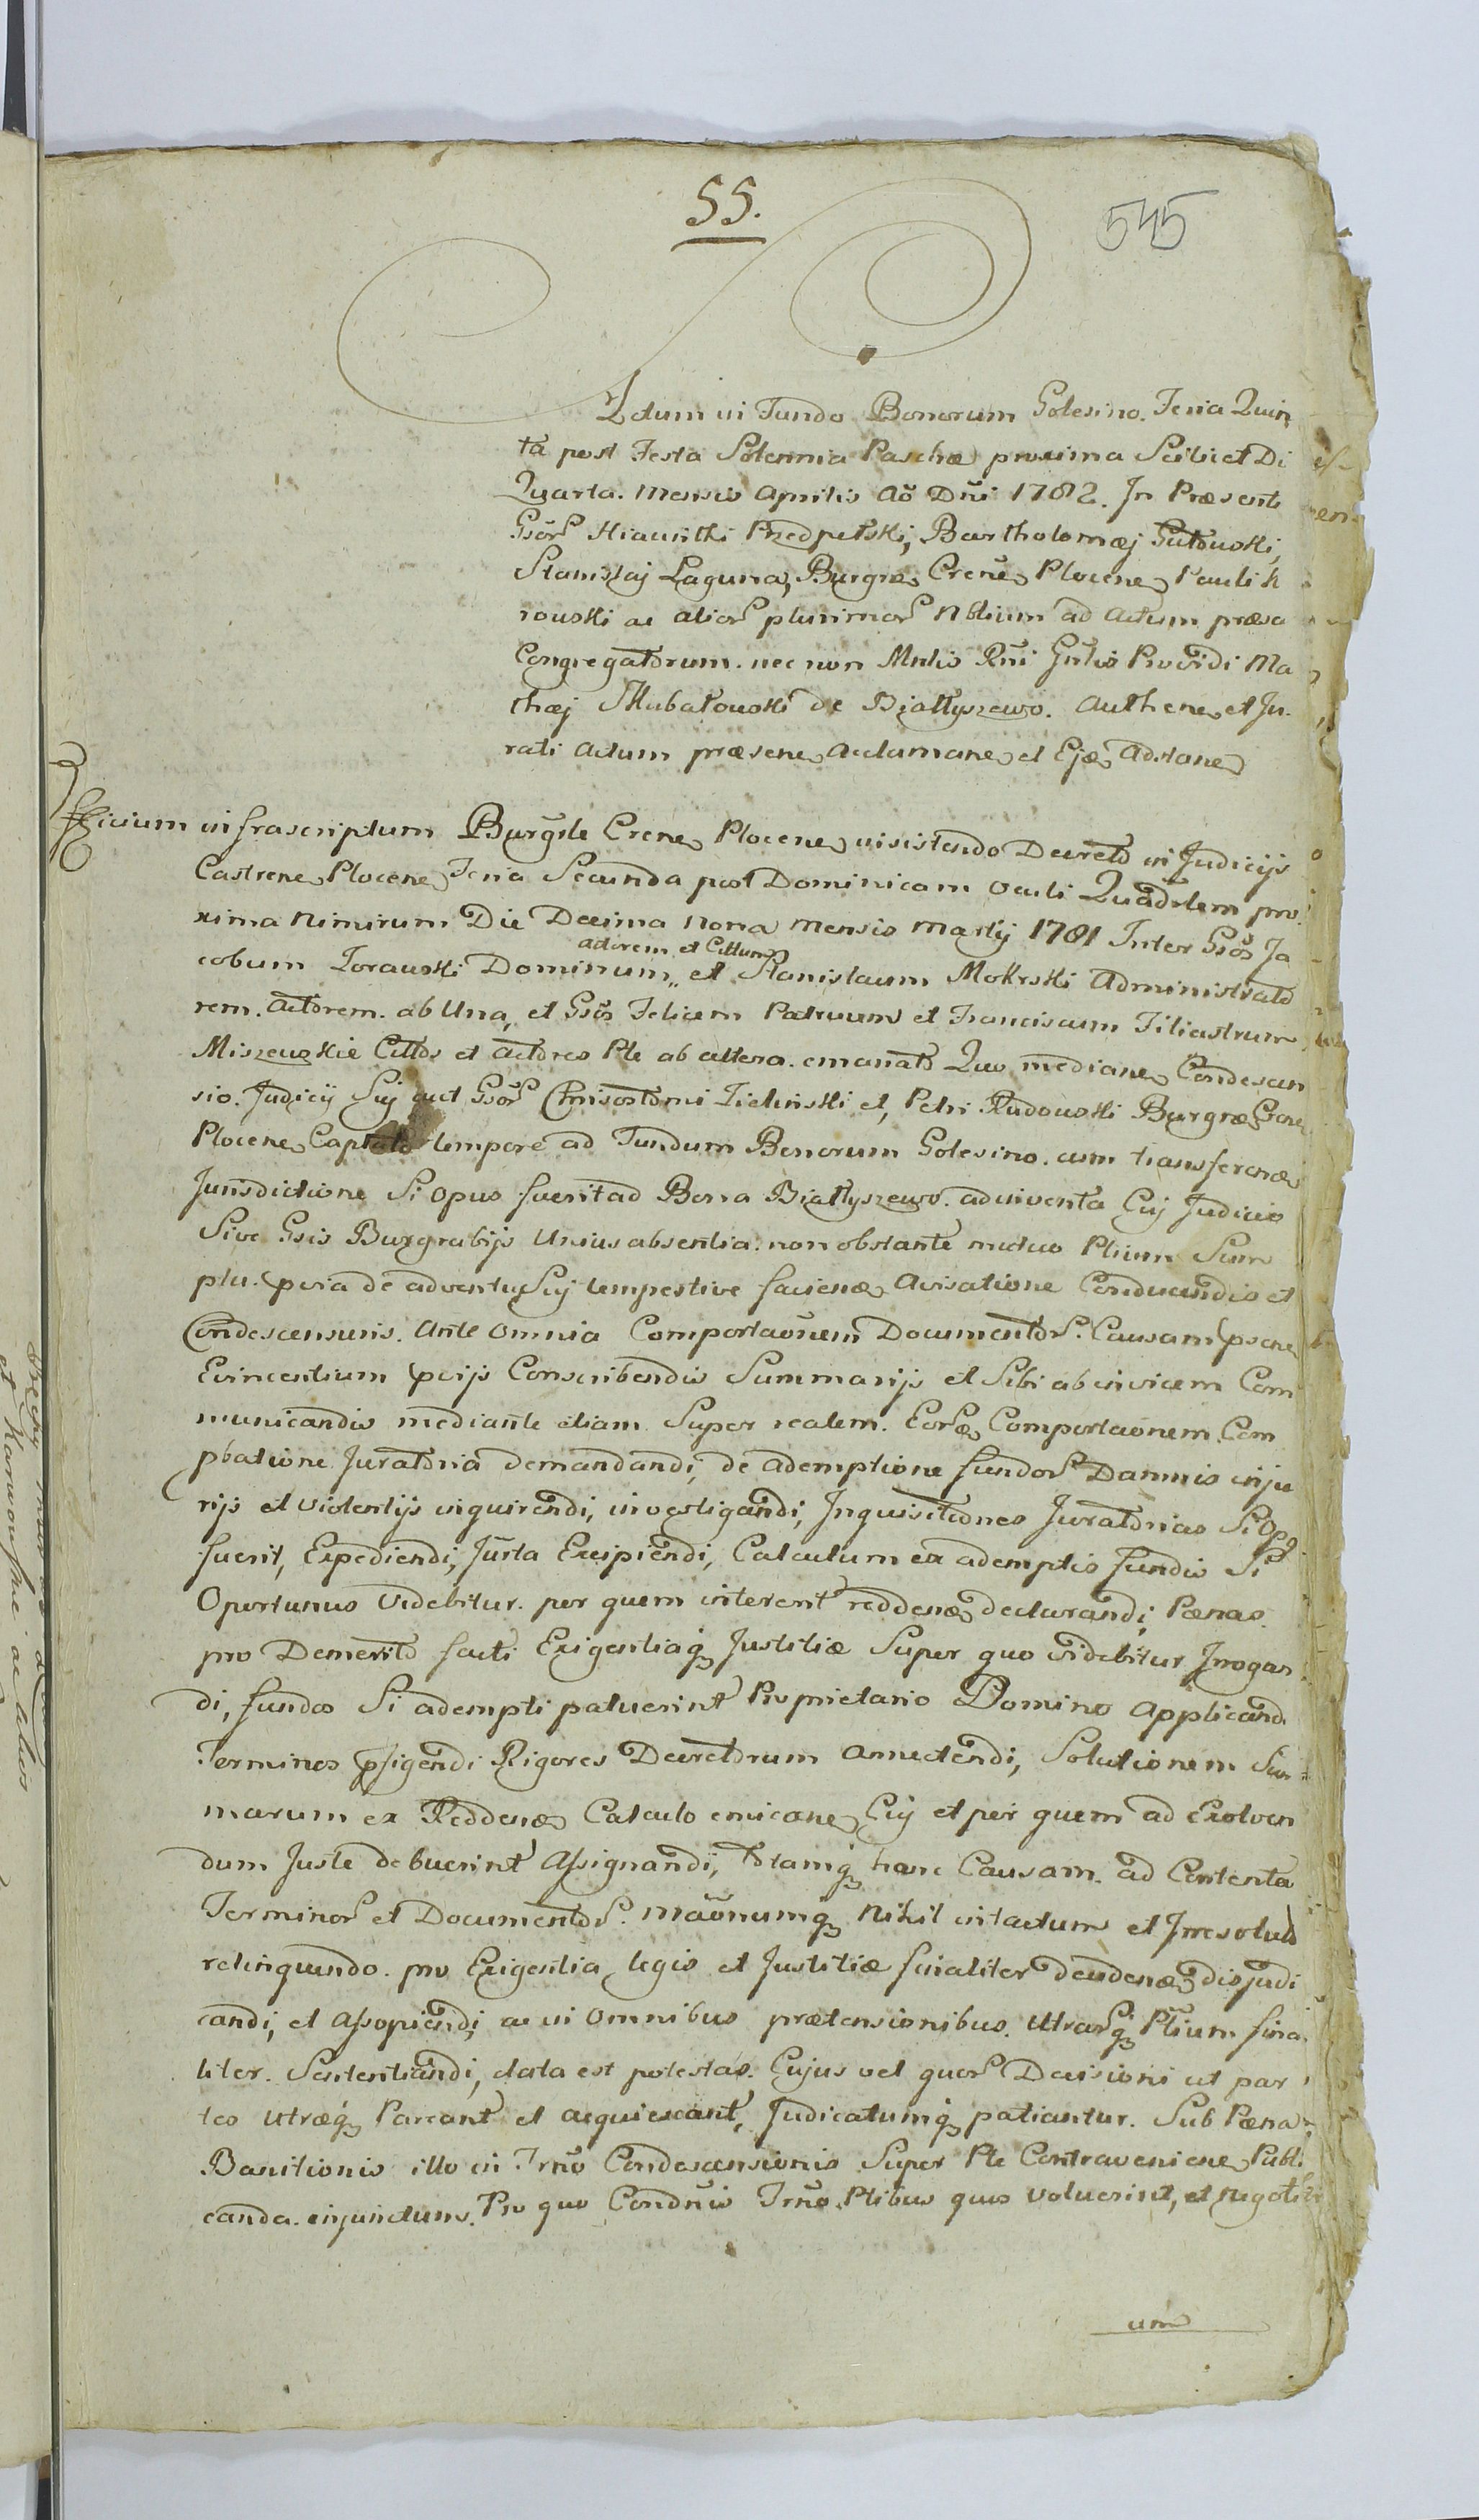 55.
545
Actum in Fundo Bonorum Golesino. Feria Quin
ta post Festa Solennia Paschæ proxima Scilicet Di
Quarta. Mensis Aprilis Aõ Dñi 1782. Jn Præsenti
Gsõr Hiacinthi Przedpełski, Bartholomæj Gutowski,
Stanislaj Laguna, Burgræ Crene Plocene Pauli K
nowski ac alior plurimor Nblium ad Actum præsa
Congregatorum. nec non Mnlis Rñi Gnlis Providi Ma
thæj Skubatowski de Białłyszewo. Authene et Ju
rati Actum præsene acclamane et Ejæ Adstane
Officium infrascriptum Burgsle Crene Plocene insistendo Decreto in Judicijs
Castrene Plocene Feria Secunda post Dominicam Oculi Quadrlem pro
xima nimirum Die Decima nona mensis Martij 1781 Inter Gsõs Ja
actorem et Cittum
cobum Zorawski Dominum,, et Stanislaum Mokrski Administrato
rem. Actorem. ab Una, et Gsõs Felicem Patruum et Franciscum Filiastrum
Miszewskie Cittos et actores Pte ab altera. emanato Quo mediane Condescen
sio. Judicij Sui aut Gsõr Chrisostomi Zielinski et, Petri Rudowski Burgræ Crene
Plocene Captato tempore ad Fundum Bonorum Golesino. cum transferenæ
Jurisdictione Si opus fuerit ad Bona Białłyszewo. adinventa Cuj Judicio
Sive Gsis Burgrabijs Unius absentia. non obstante mutuo Ptium Sum
ptu. pvia de adventu Suj tempestive facienæ Avisatione Conducendis et
Condescensuris. Ante omnia Comportaõnem Documentor. Causam psene
Evincentium pvijs Conscribendis Summarijs et Sibi ab invicem Com
municandis mediante etiam Super realem. Eor Comportaõnem Com
pbatione Juratoria demandandi, de ademptione fundor Damnis inju
rijs et violentijs inquirendi, investigandi, Jnquisitiones Juratorias Si Op
fuerit, Expediendi, Juxta Excipiendi, Calculum ex ademptis fundis Si
Oportunus Videbitur. per quem interent reddenæ declarandi, Pænas
pro Demerito facti Exigentiaq Justitiæ Super quo videbitur Jrrogan
di, fundos Si adempti patuerint Proprietario Domino Applicandi
Terminos pfigendi Rigores Decretorum Annectendi, Solutionem Sum
marum ex Reddenæ Calculo emicane Cuj et per quem ad Exolven
dum Juste debuerint Assignandi, totamq hanc Causam. ad Contenta
Terminor et Documentor. Maõnumq Nihil intactum et Jrresolut
relinquendo. pro Exigentia legis et Justitiæ finaliter decidenæ disjudi
candi, et Assopiendi ac in Omnibus prætensionibus. Utrarq Ptium fina
liter. Sententiandi, data est potestas. Cujus vel quor Decisioni ut par
tes Utræq Pareant et acquiescant, Judicatumq patiantur. Sub Pæna
Banitionis illo in Trño Condescensionis Super Pte Contraveniene Publi
canda. injunctum. Pro quo Condñis Trño Ptibus quis voluerint, et Negoti
um